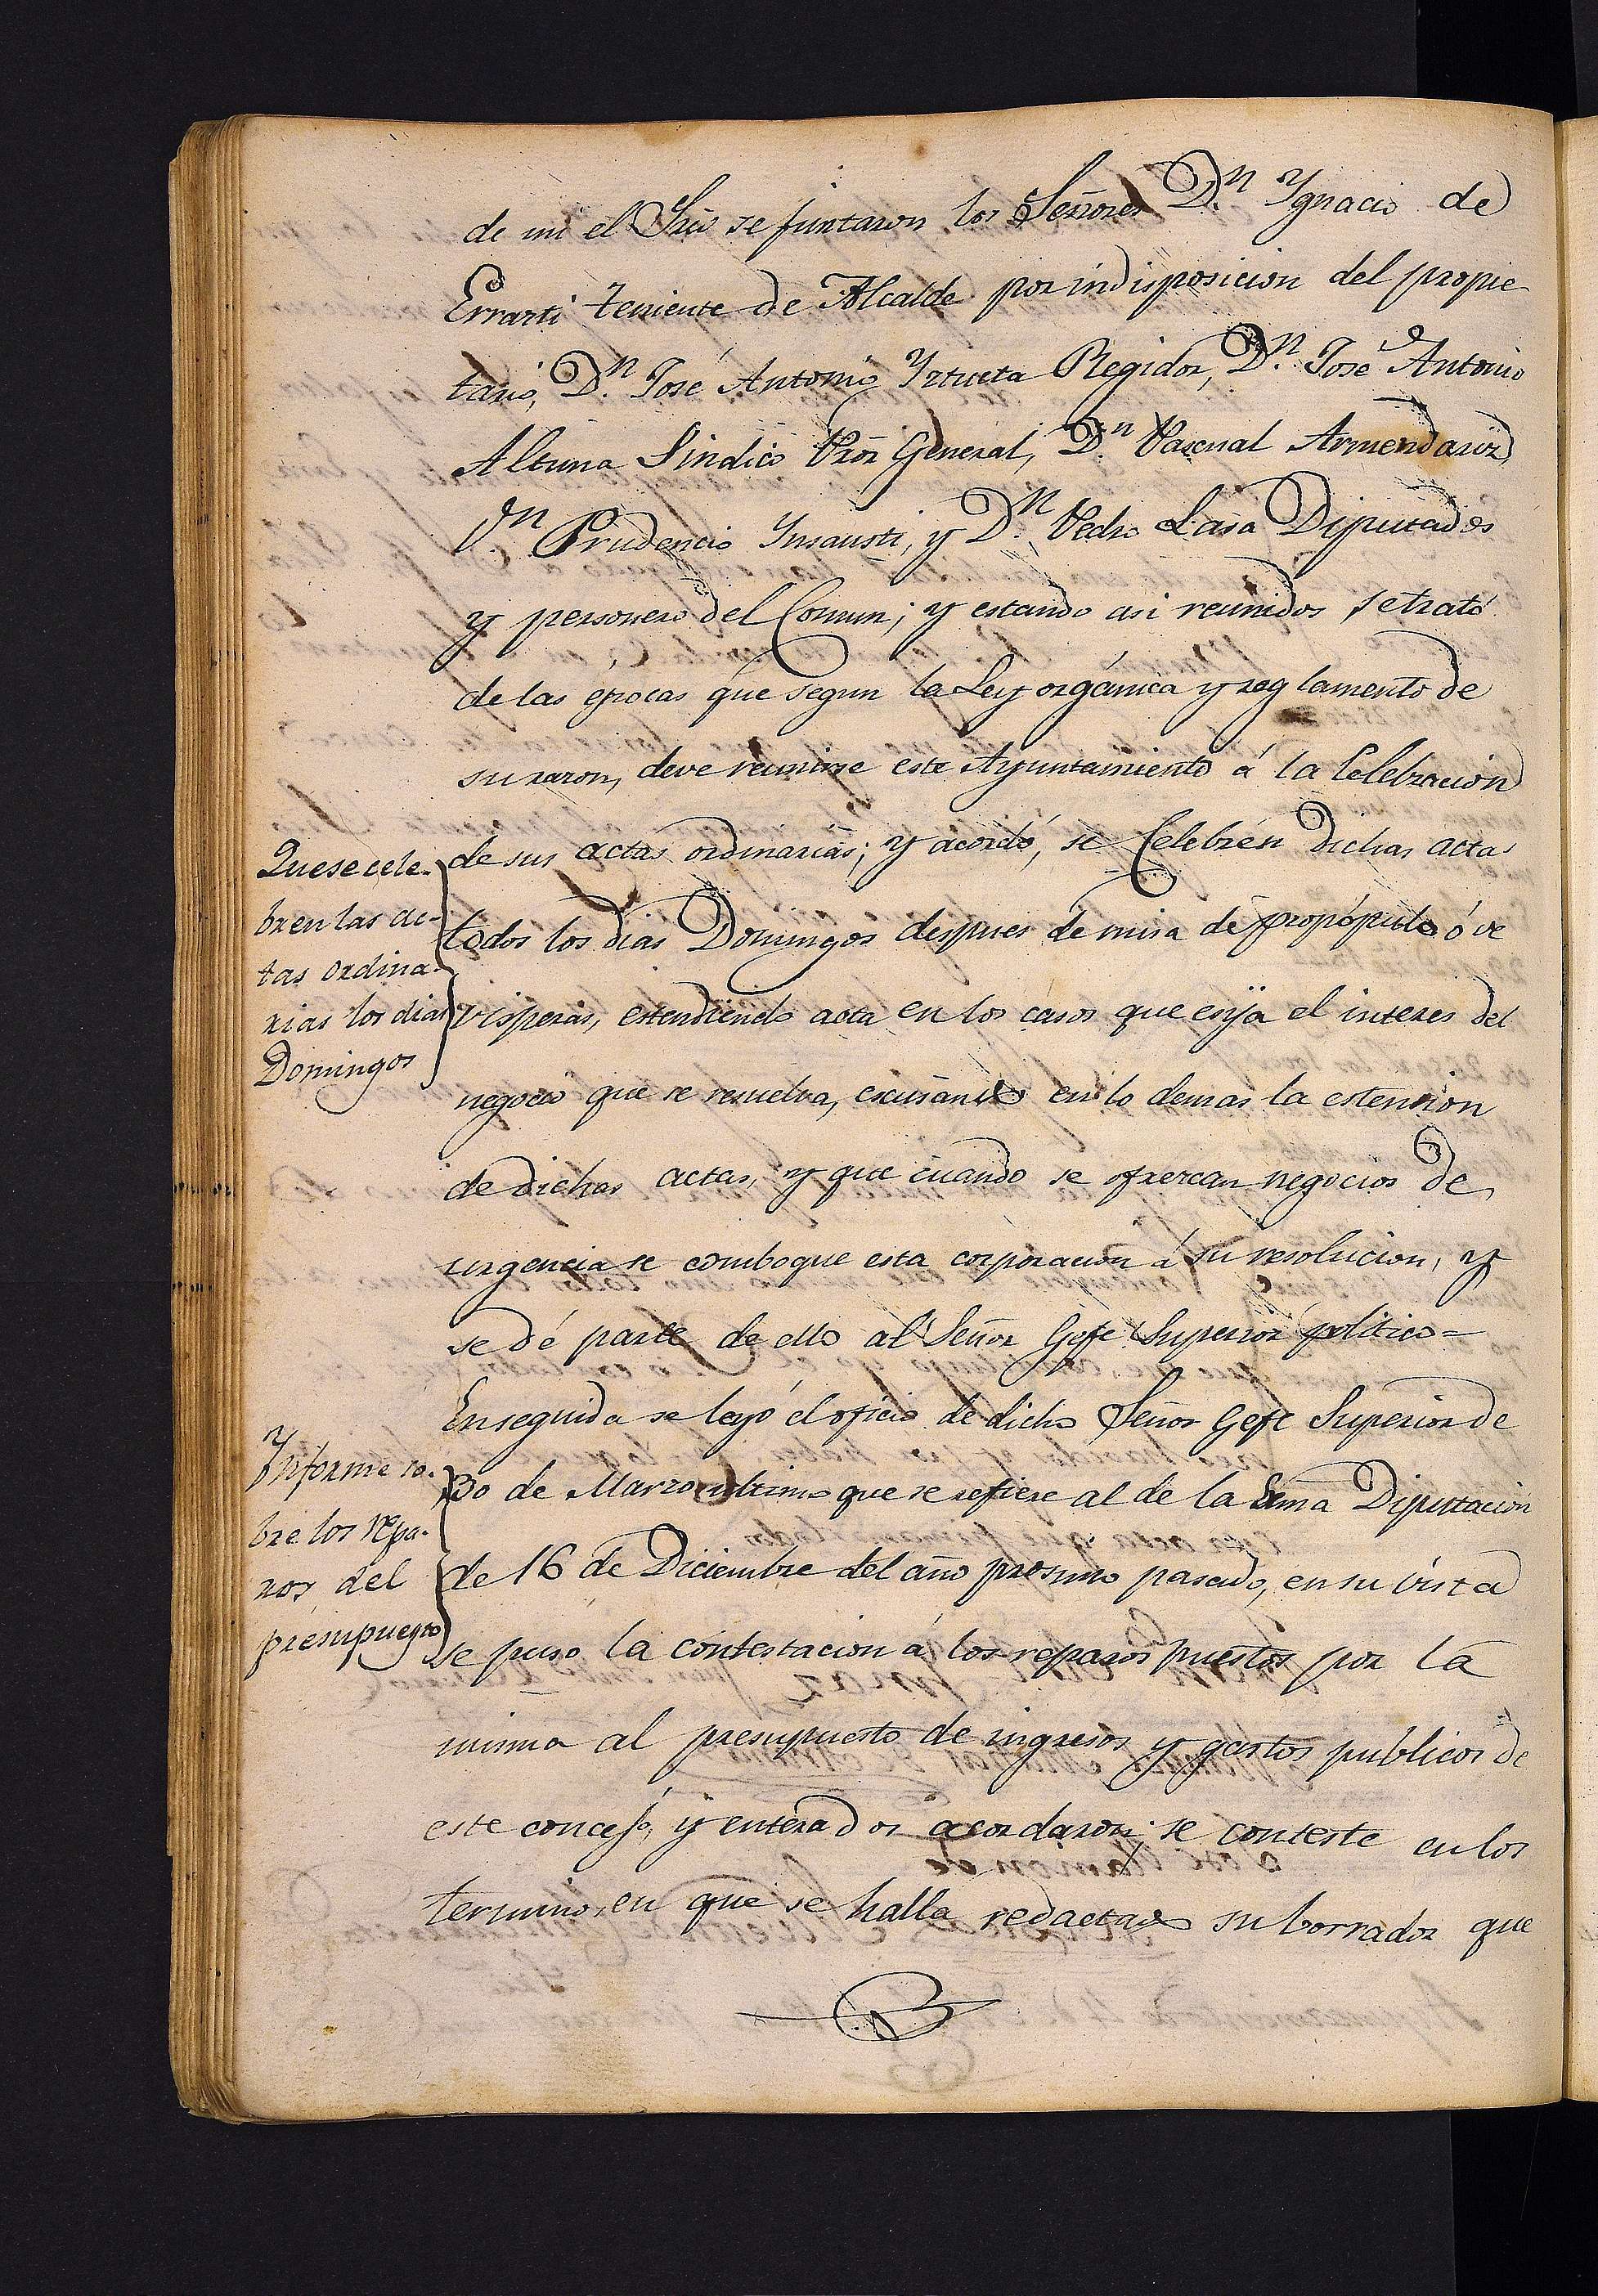 de mi el Srio se juntaron los Señores D.n Ygnacio de
Errarti teniente de Alcalde por indisposicion del propie
tario, D.n José Antonio Yztueta Regidor, D.n José Antonio
Altuna Sindico Pror General, D.n Pascual Armendariz,
D.n Prudencio Ynsausti, y D.n Pedro Lasa Diputados
y personero del Comun; y estando asi reunidos se trató
de las épocas que segun la Ley orgánica y reglamento de
su razon, deve reunirse este Ayuntamiento á la Celebracion
de sus actas ordinarias; y acordó, se Celebren dichas actas
todos los dias Domingos despues de misa de propópulo ó de
visperas, estendiendo acta en los casos que esija el interes del
negocio que se resuelva, escusando en lo demas la estension
de dichas actas, y que cuando se ofrezcan negocios de
urgencia se comboque esta corporacion á su resolucion, y
se dé parte de ello al Señor Gefe Superior politico =
Enseguida se leyó el oficio de dicho Señor Gefe Superior de
30 de Marzo ultimo que se refiere al de la Exma Diputacion
de 16 de Diciembre del año prosimo pasado, en su vista
se puso la contestacion á los reparos puestos por la
misma al presupuesto de ingresos y gastos publicos de
este concejo, y enterados acordaron; se conteste en los
terminos en que se halla redactado su borrador que
Que se cele-
bren las ac-
tas ordina-
rias los dias
Domingos
Ynforme so-
bre los repa-
ros del
presupuesto